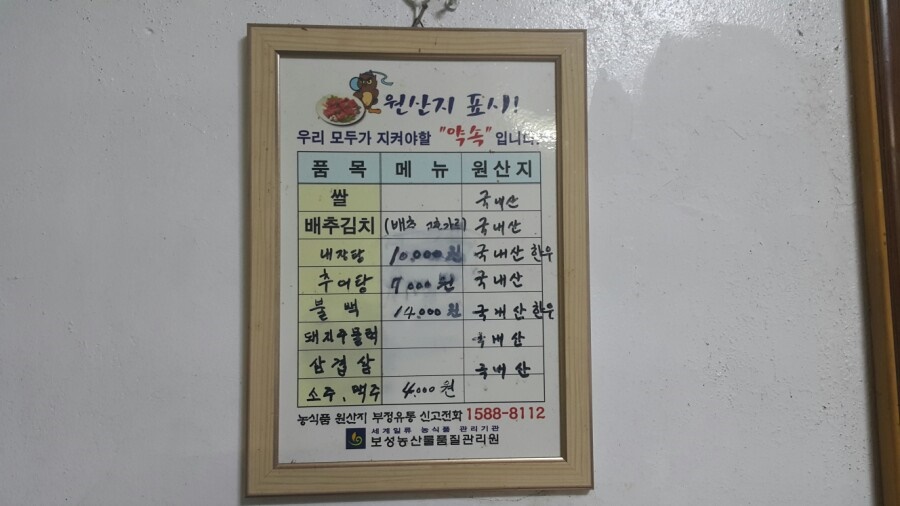 원산지 표시!
우리 모두가 지켜야할 "약속"입니다.
품 목 메 뉴 원산지
쌀 국내산
배추김치 (배추 고춧가루) 국내산
내장탕 10.000원 국내산 한우
추어탕 7.000원 국내산
불백 14.000원 국내산 한우
돼지주물럭 국내산
삼겹살 국내산
소주, 맥주 4.000원
농식품 원산지 부정유통 신고전화 1588-8112
세계일류 농식품 관리기관
보성농산물품질관리원